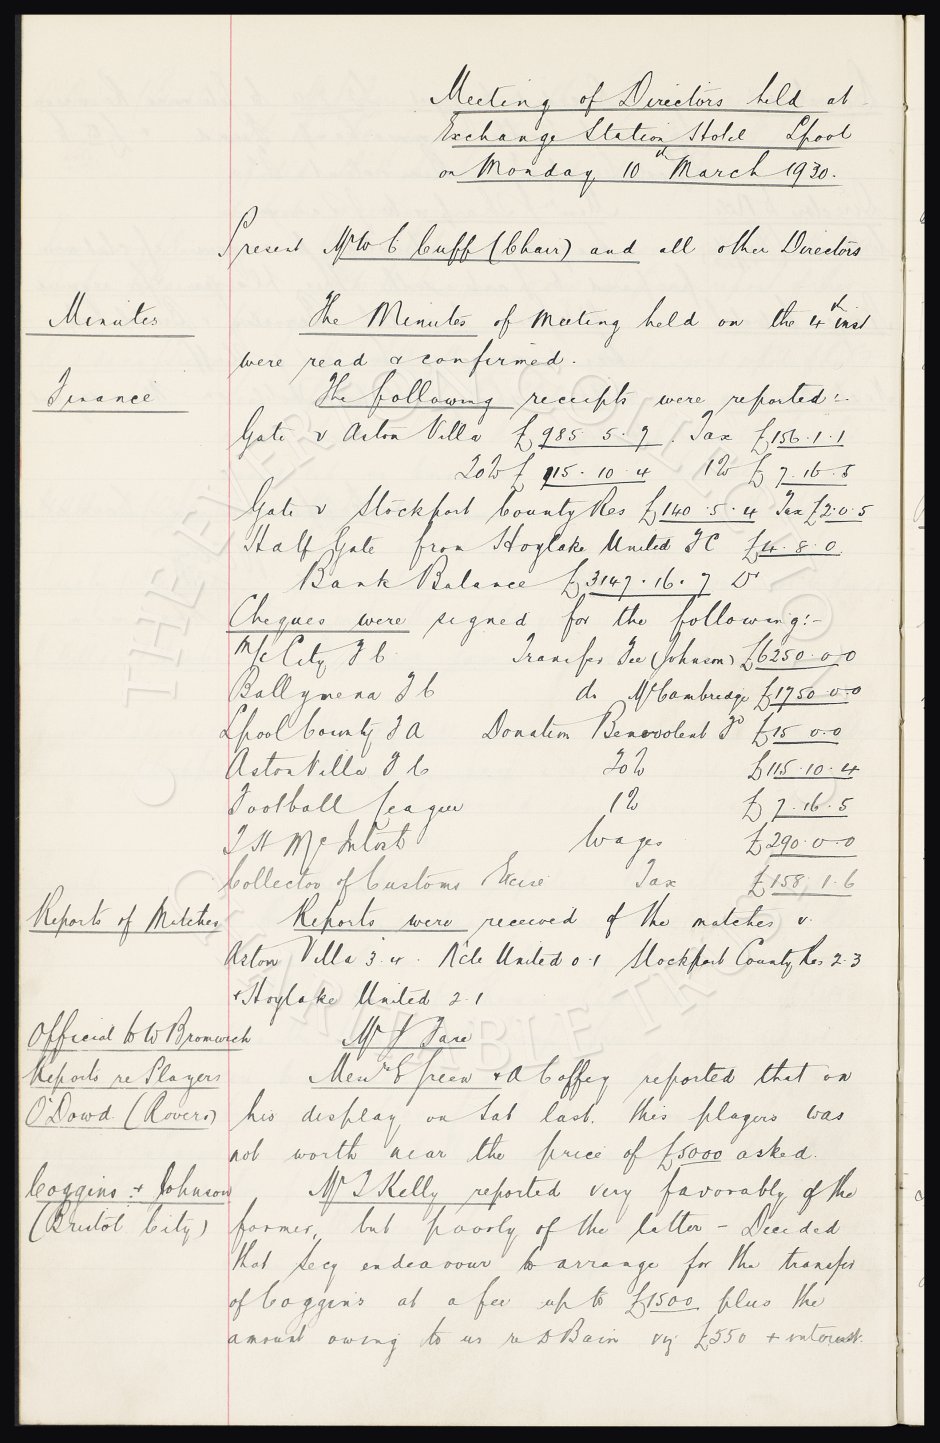 Meeting of Directors held at
Exchange Station Hotel Lpool
on Monday 10th March 1930.
Present Mr W C Cuff (Chair) and all other Directors
Minutes The Minutes of Meeting held on the 4th inst
were read & confirmed.
Finance The following receipts were reported:-
Gate v Aston Villa £985. 5. 9. Tax £156. 1. 1
20% £115. 10. 4 1% £7. 16. 5
Gate v Stockport County Res £140. 5. 4 Tax £2. 0. 5
Half Gate from Hoylake United FC £4. 8. 0.
Bank Balance £3147. 16. 7 Dr
Cheques were signed for the following:-
M/c City F C. Transfer Fee (Johnson) £6250. 0. 0
Ballymena F C do McCambridge £1750. 0. 0
Lpool County F A Donation Benevolent Fd £15. 0. 0
Aston Villa F C 20% £115. 10. 4
Football League 1% £7. 16. 5
T H McIntosh Wages £290. 0. 0
Collector of Customs Excise Tax £158. 1. 6
Reports of Matches Reports were received of the matches v.
Aston Villa 3. 4. Ncle United 0. 1 Stockport County Res 2. 3
& Hoylake United 2. 1
Official to W Bromwich Mr J Fare
Reports re Players Messrs E Green & A Coffey reported that on
O'Dowd (Rovers) his display on Sat last. this players was
not worth near the price of £5000 asked.
Coggins & Johnson Mr T Kelly reported very favorably of the
(Bristol City) former, but poorly of the latter - Decided
that Secy endeavour to arrange for the transfer
of Coggins at a fee up to £1500 plus the
amount owing to us re D Bain viz £550 + interest.
© THE EVERTON COLLECTION
CHARITABLE TRUST